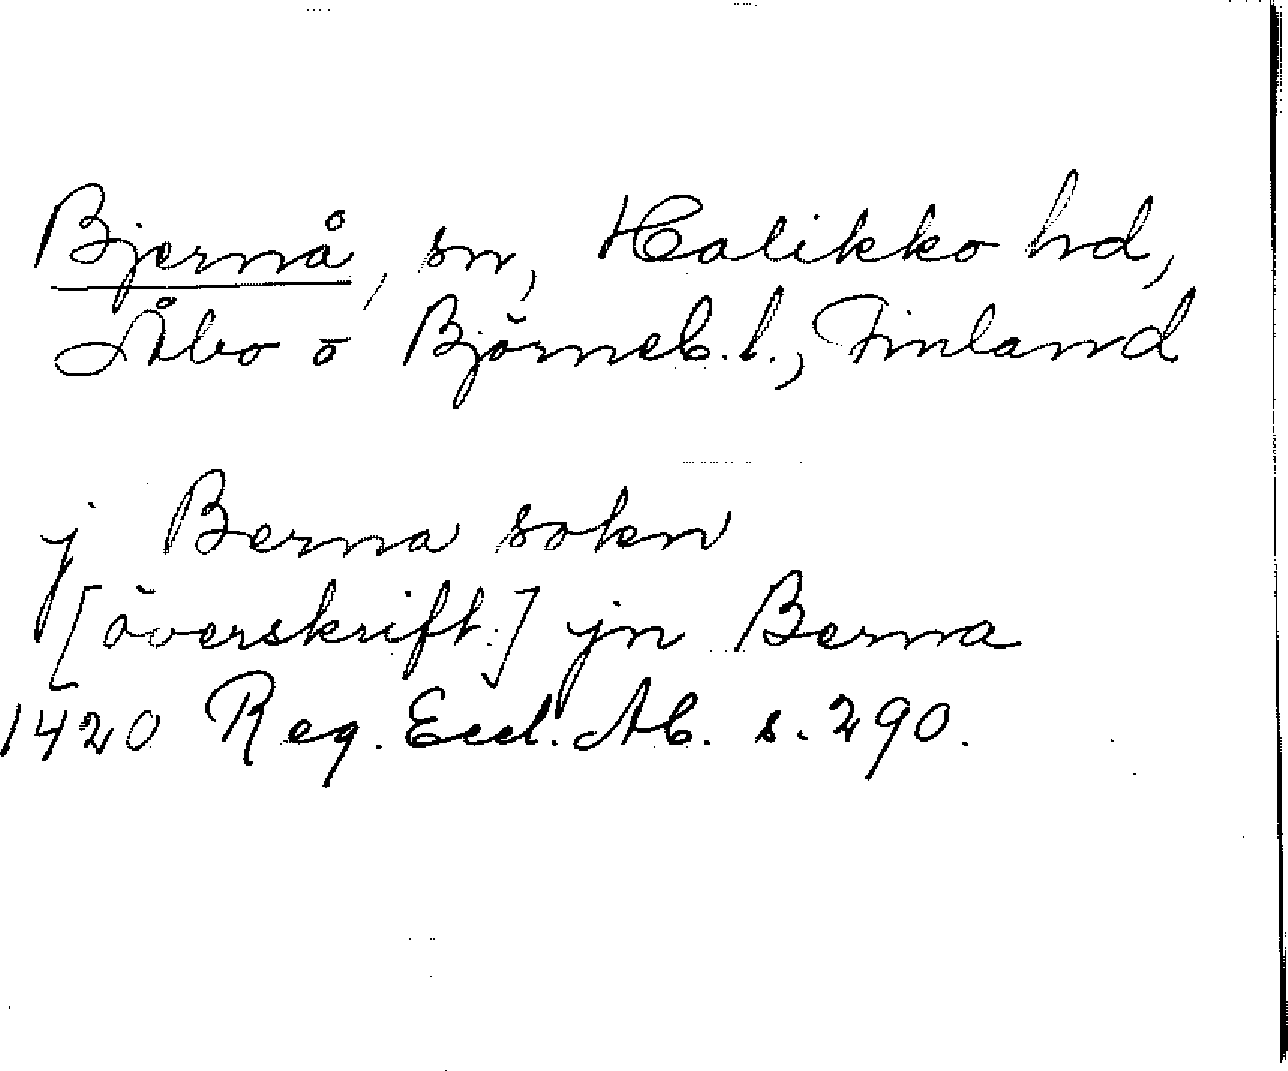 Bjernå, sn, Halikko hd,
Åbo o Björneb. l., Finland
j Berna sokn
[överskrift.] jn Berna
1420 Reg. Eccl. Ab. s. 290.